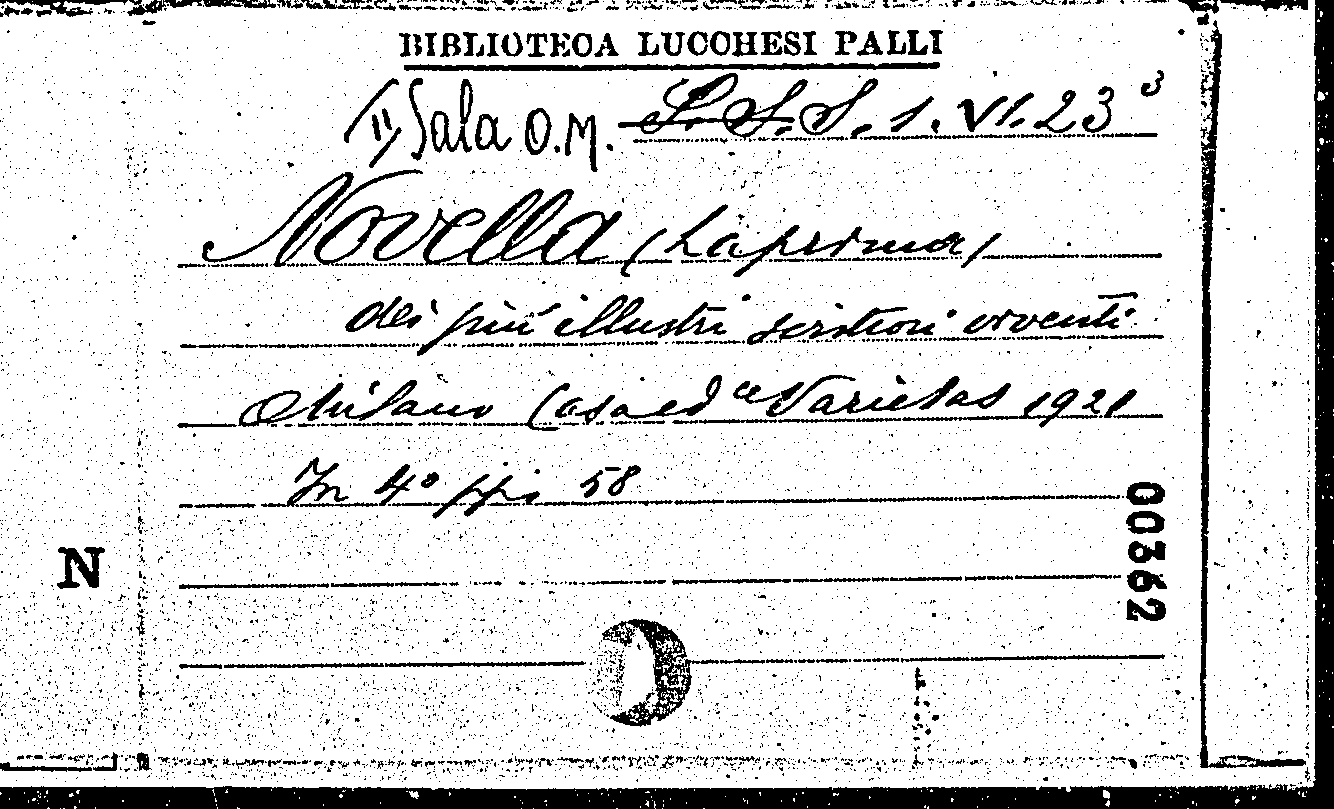 BIBLIOTECA LUCCHESI PALLI
II Sala O.M. L. S. S. 1. VI. 23 3
Novella (La prima)
dei più illustri scrittori viventi
Milano Casa ed ce Varietas 1921
In 4° pp. 58
N
00362